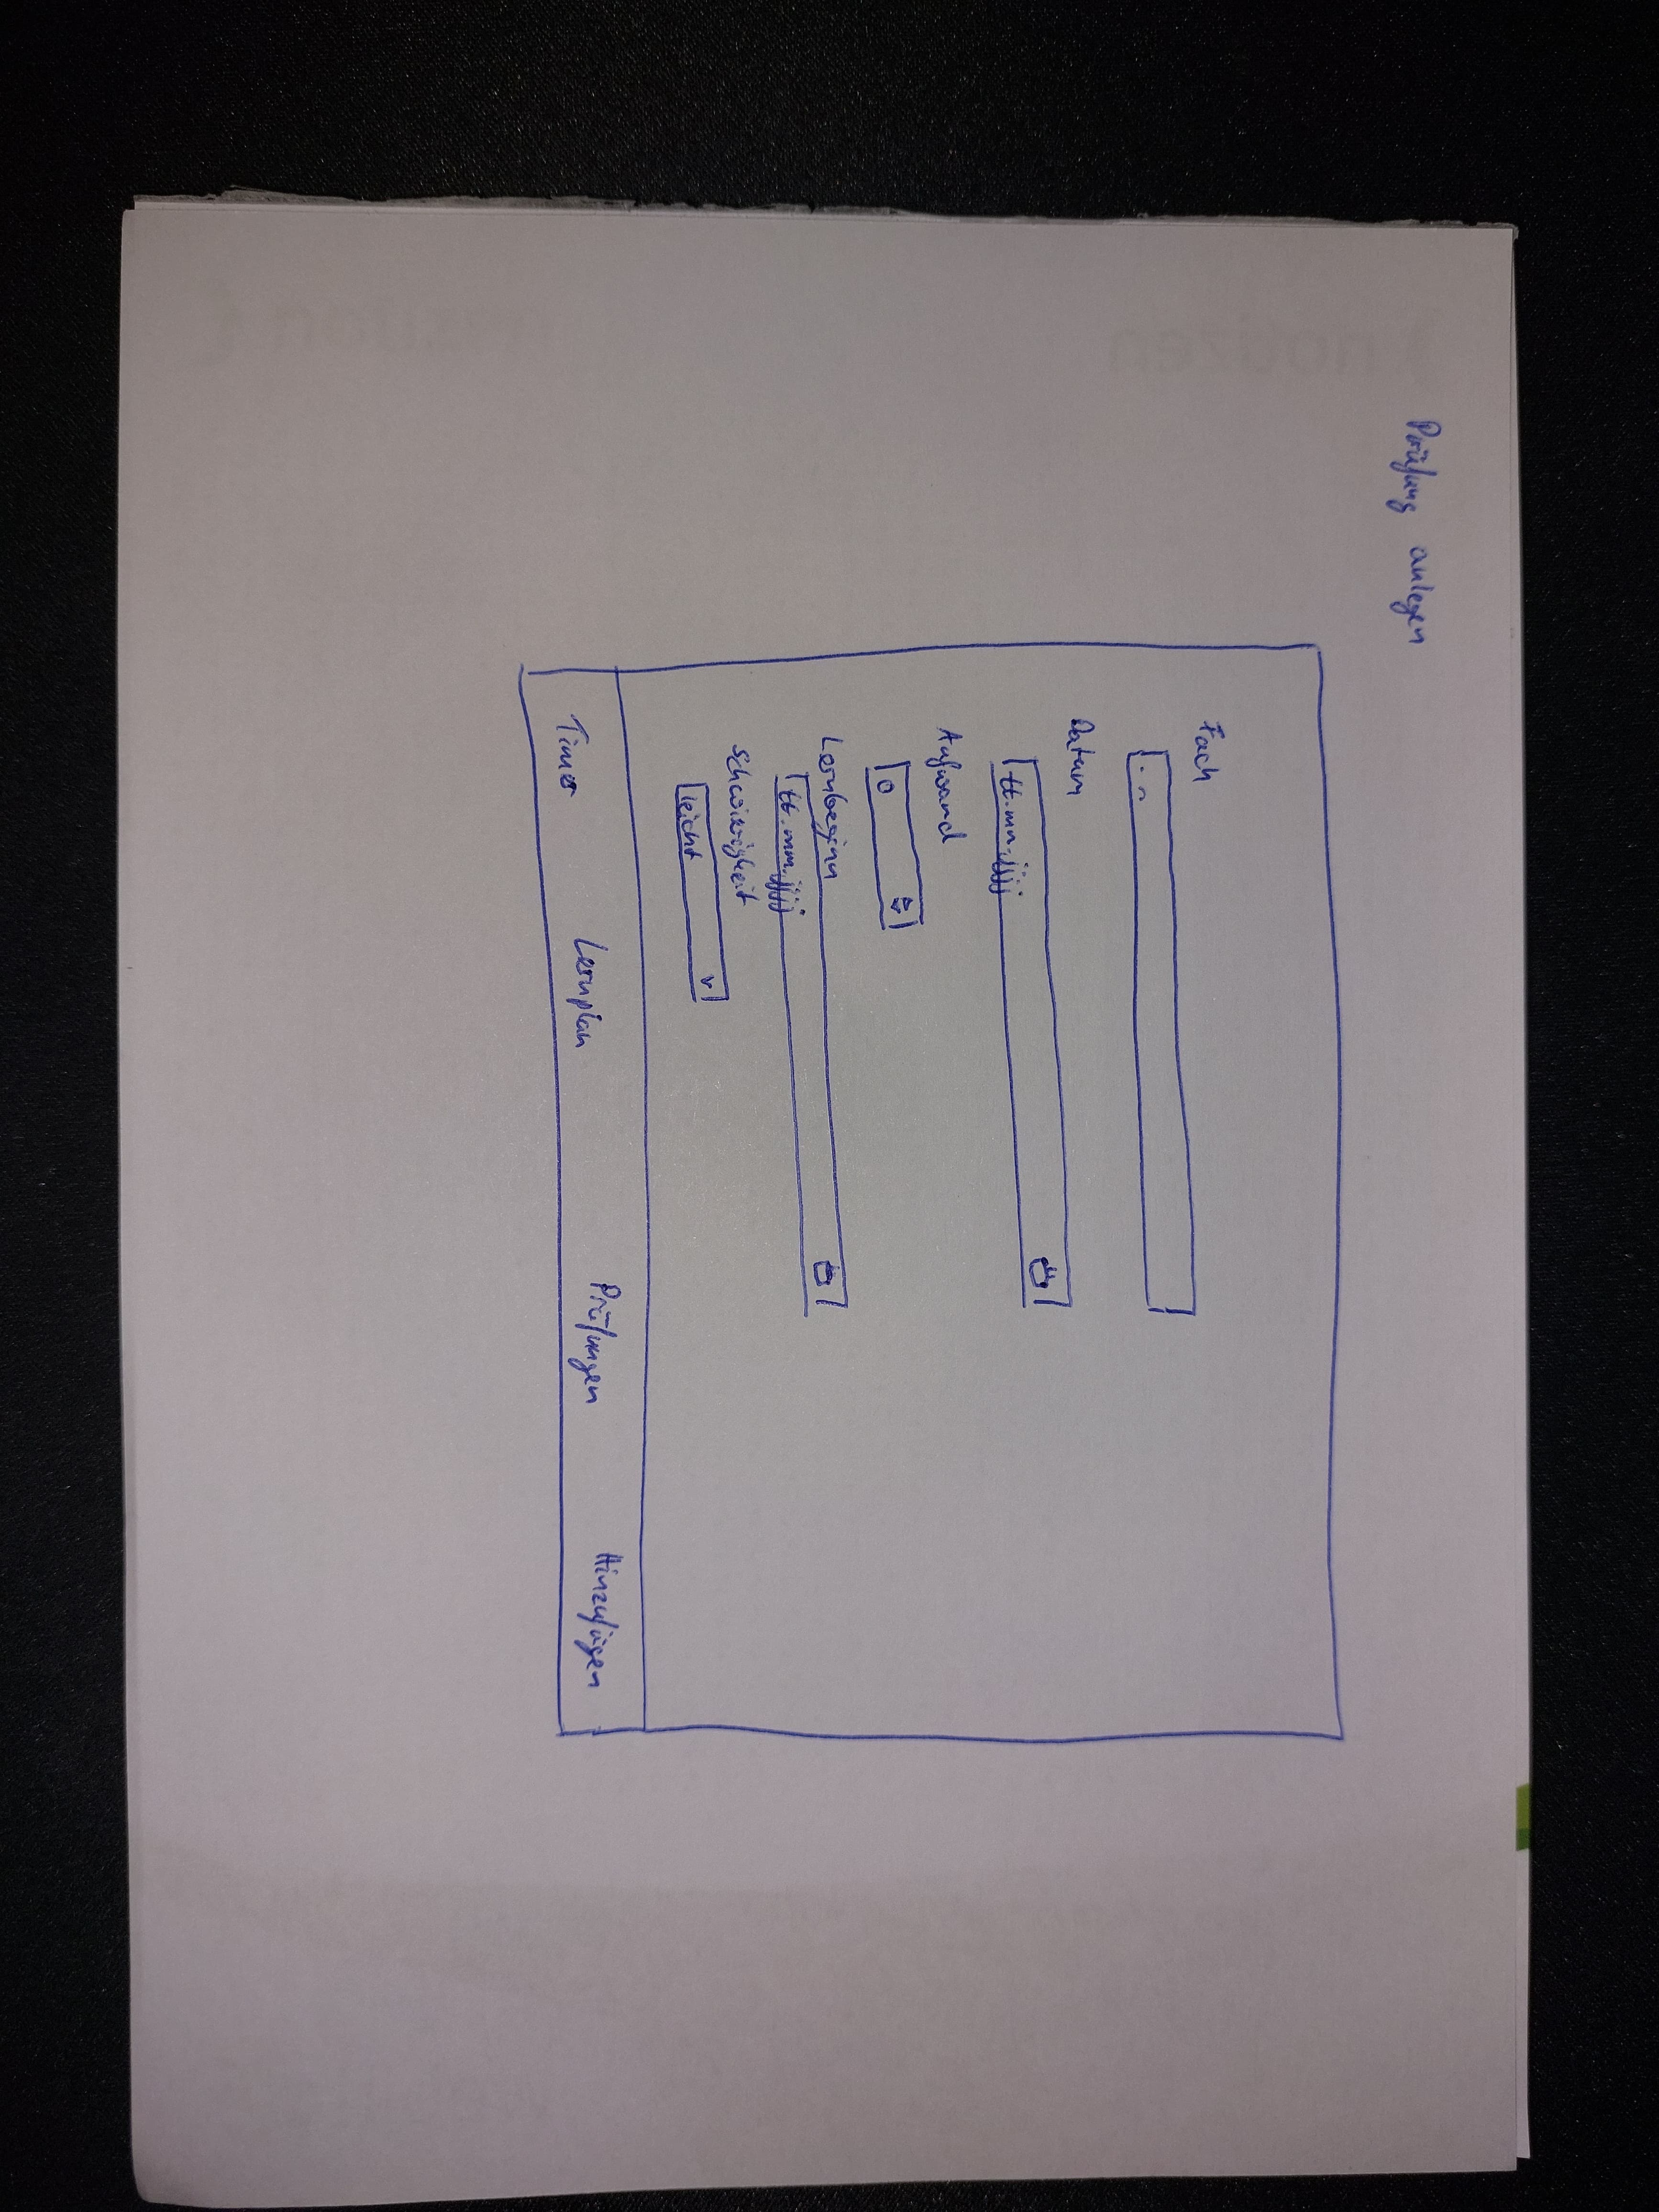 Prüfung anlegen
Fach
Datum
tt.mm.jjjj
Aufwand
0
Lernbeginn
tt.mm.jjjj
Schwirigkeit
leicht
Timer
Lernplan
Prüfungen
Hinzufügen